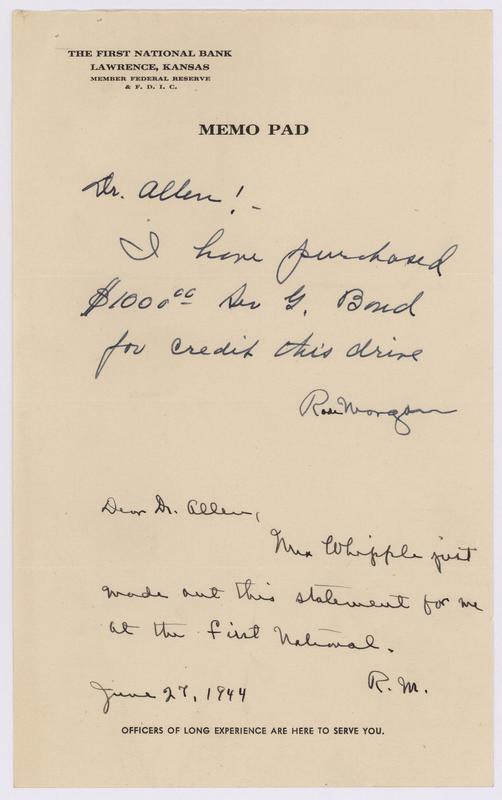 THE FIRST NATIONAL BANK
LAWRENCE, KANSAS
MEMBER FEDERAL RESERVE
& F. D. I. C.
MEMO PAD
Dr. Allen! -
I have purchased
$1000.00 Ser G. Bond
for credit this drive
Rose Morgan
Dear Dr. Allen,
Mrs Whipple just
made out this statement for me
at the First National.
R. M.
June 27, 1944
OFFICERS OF LONG EXPERIENCE ARE HERE TO SERVE YOU.